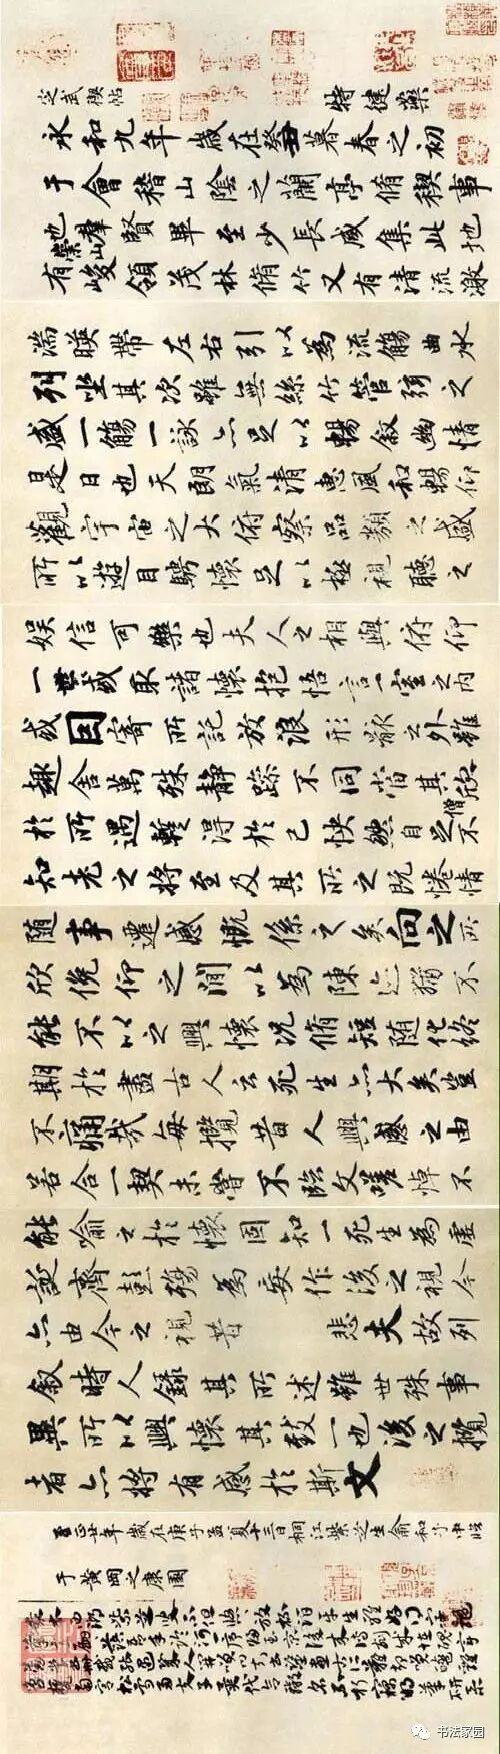 定武禊帖 特健藥
永和九年歲在癸丑暮春之初
于會稽山陰之蘭亭脩稧事
也羣賢畢至少長咸集此地
有崇山峻領茂林脩竹又有清流激
湍暎帶左右引以為流觴曲水
列坐其次雖無絲竹管弦之
盛一觴一詠亦足以暢敘幽情
是日也天朗氣清惠風和暢仰
觀宇宙之大俯察品類之盛
所以遊目騁懷足以極視聽之
娛信可樂也夫人之相與俯仰
一世或取諸懷抱悟言一室之內
或因寄所託放浪形骸之外雖
趣舍萬殊靜躁不同當其欣
於所遇蹔得於己快然自足不
僧
知老之將至及其所之既惓情
隨事遷感慨係之矣向之所
欣俛仰之閒以為陳迹猶不
能不以之興懷況脩短隨化終
期於盡古人云死生亦大矣豈
不痛哉每攬昔人興感之由
若合一契未嘗不臨文嗟悼不
能喻之於懷固知一死生為虛
誕齊彭殤為妄作後之視今
亦由今之視昔悲夫故列
敘時人錄其所述雖世殊事
異所以興懷其致一也後之攬
者亦將有感於斯文
至正廿年歲在庚子孟夏十三日桐江紫芝生俞和子中臨
于黃岡之康園
书法家园